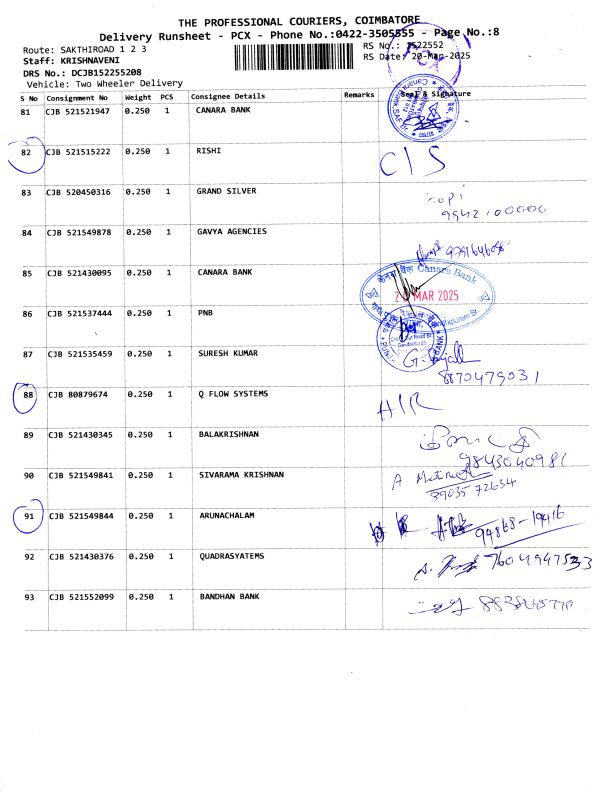 THE PROFESSIONAL COURIERS, COIMBATORE
Delivery Runsheet - PCX - Phone No.:0422-3505555 - Page No.:8
Route: SAKTHIROAD 1 2 3
RS No.: 7522552
Staff: KRISHNAVENI
RS Date: 20-Mar-2025
DRS No.: DCJB152255208
Vehicle: Two Wheeler Delivery
S No Consignment No Weight PCS Consignee Details Remarks Seal & Signature
81 CJB 521521947 0.250 1 CANARA BANK
82 CJB 521515222 0.250 1 RISHI C/S
83 CJB 520450316 0.250 1 GRAND SILVER
84 CJB 521549878 0.250 1 GAVYA AGENCIES
85 CJB 521430095 0.250 1 CANARA BANK
केनरा बैंक Canara Bank
MAR 2025
86 CJB 521537444 0.250 1 PNB
87 CJB 521535459 0.250 1 SURESH KUMAR
8870479031
88 CJB 80879674 0.250 1 Q FLOW SYSTEMS
89 CJB 521430345 0.250 1 BALAKRISHNAN
9843040981
90 CJB 521549841 0.250 1 SIVARAMA KRISHNAN
91 CJB 521549844 0.250 1 ARUNACHALAM
99868-19416
92 CJB 521430376 0.250 1 QUADRASYATEMS 7604947533
93 CJB 521552099 0.250 1 BANDHAN BANK